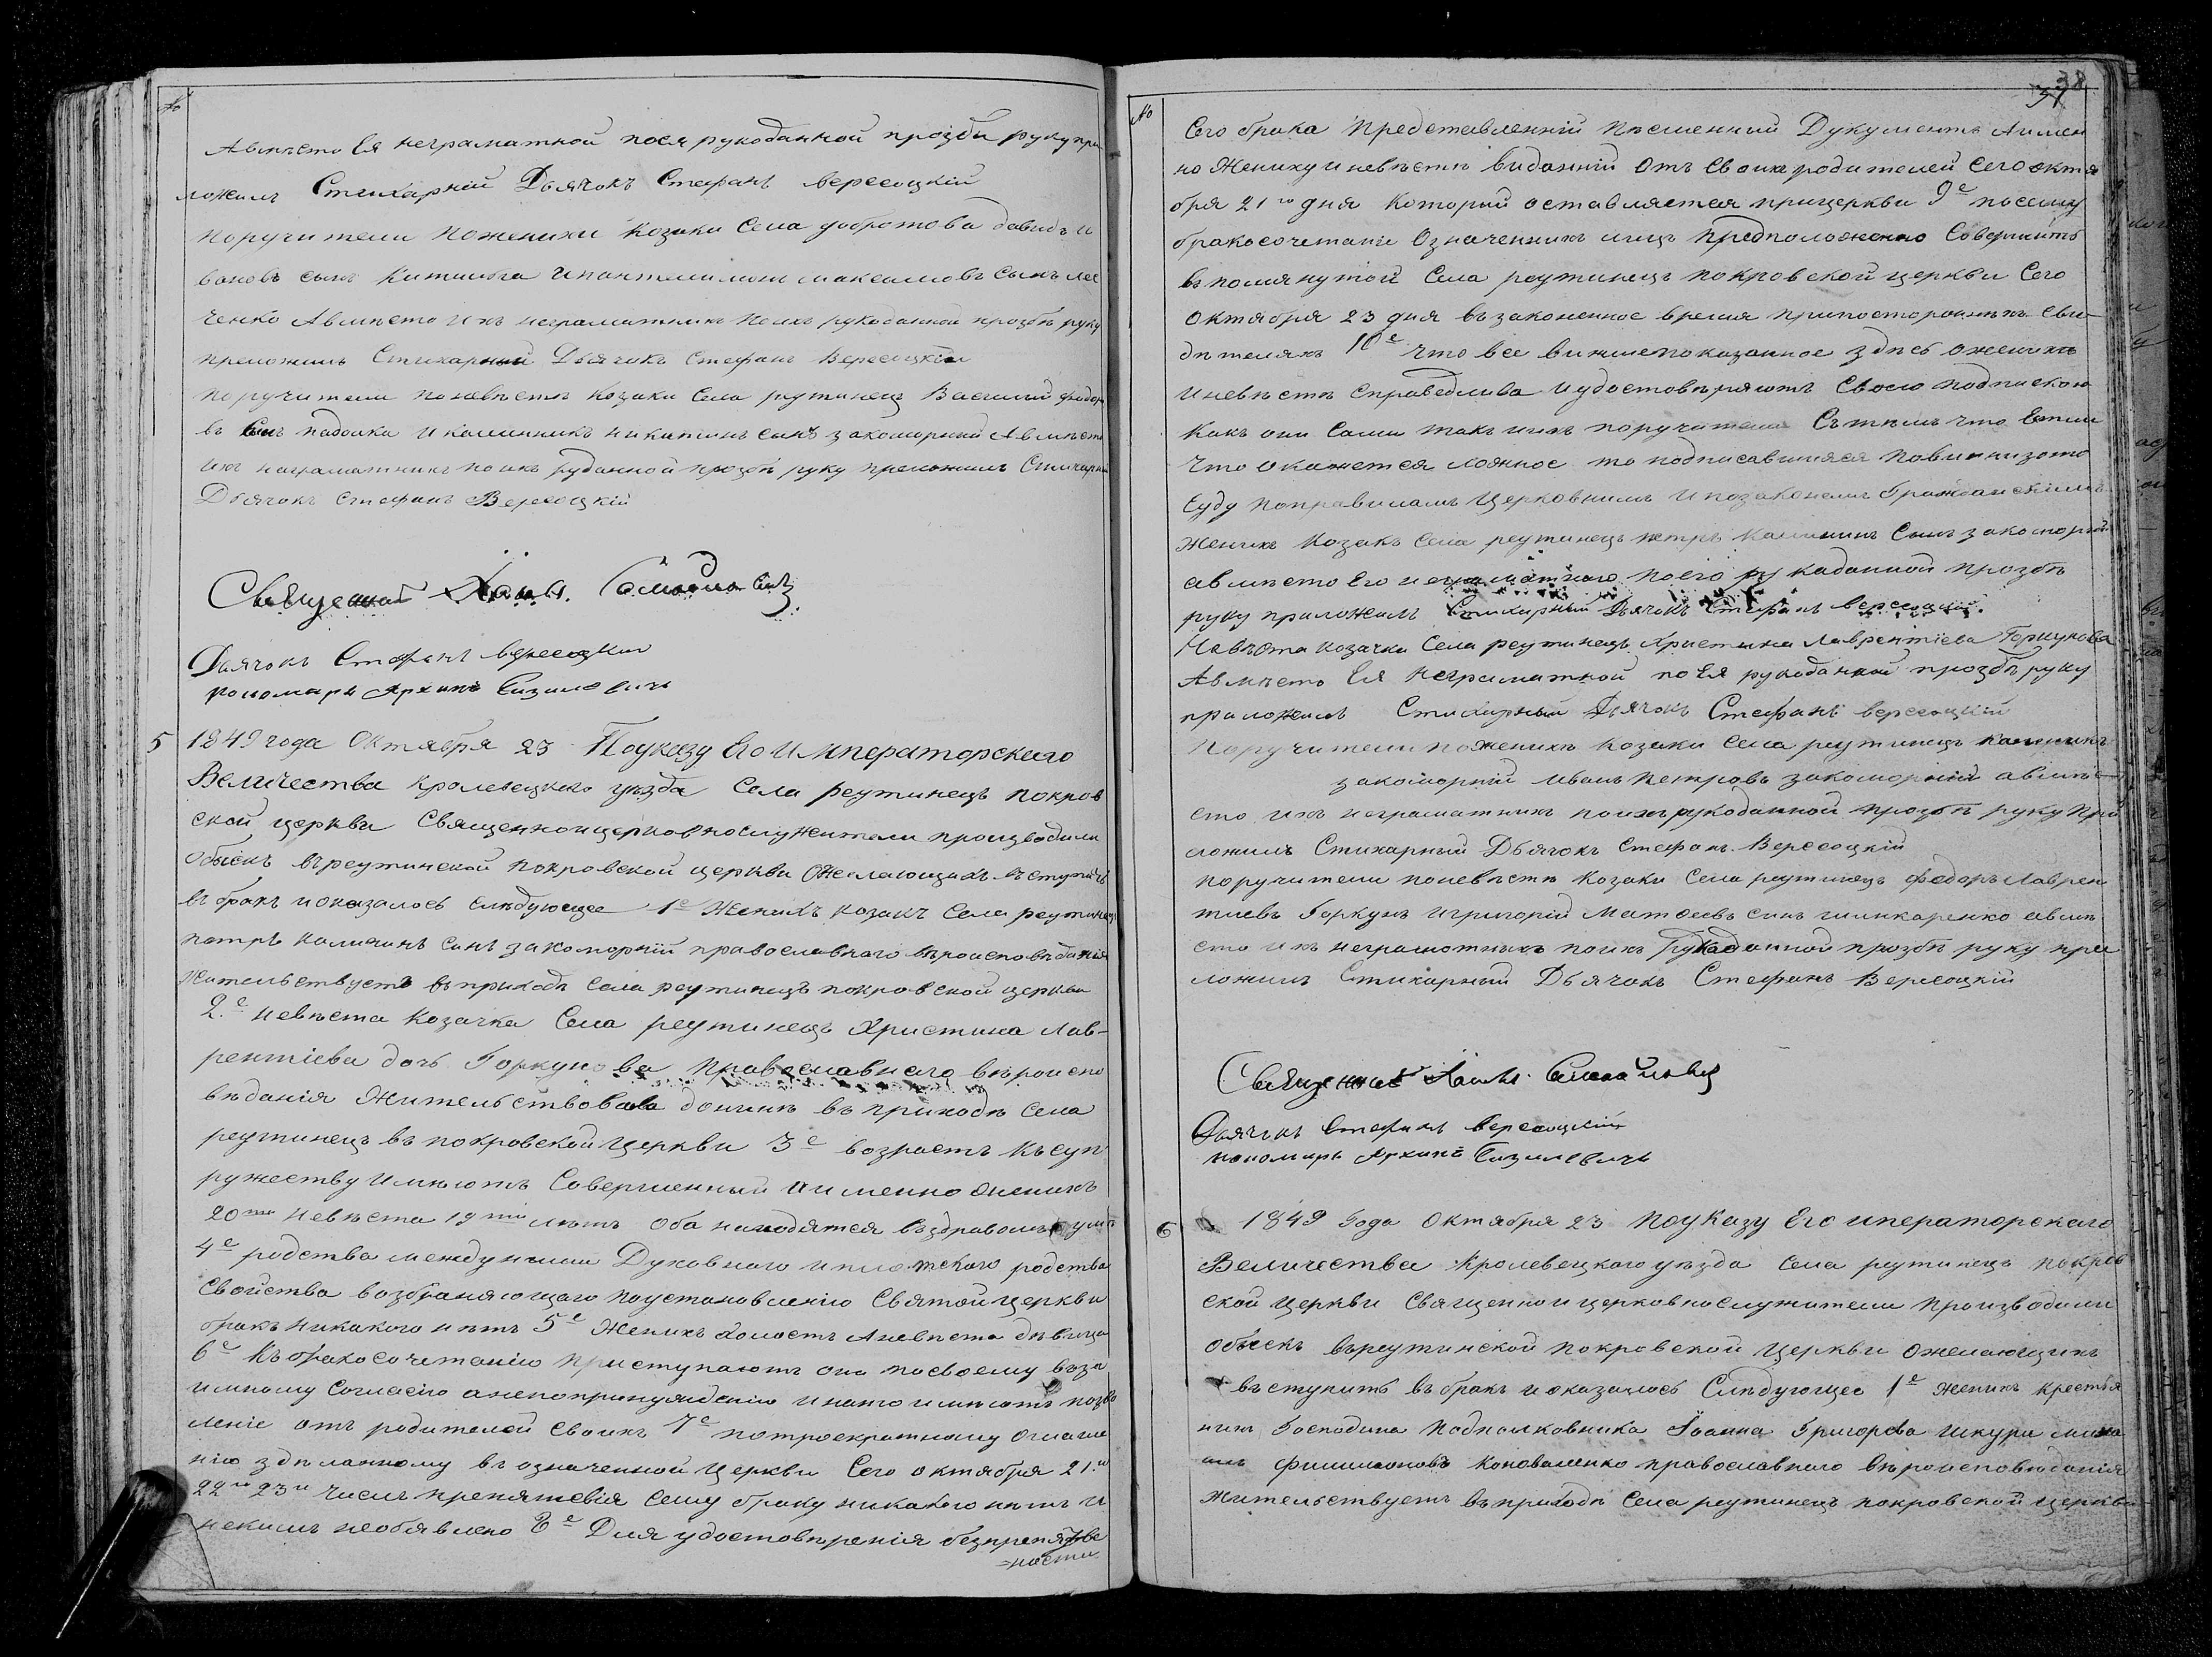 №
Авместо Ея неграматной поея рукоданной прозби руку при
ложилъ Стихарній Дьячокъ Стефанъ Вересоцкій
Поручители поженихи Козаки Села добротова давидъ и
вановъ сынъ Китишба ипантелимонъ максимовъ Сынъ лес
ченко Авместо ихъ неграматнихъ поихъ рукоданной прозбѣ руку
преложилъ Стихарный Дьячокъ Стефанъ Вересоцкій
поручители поневѣстѣ Козаки Села реутинецъ Василий федоро
въ сынъ падалка и калинникъ никитинъ сынъ закоморний Авмѣсто
ихъ награматнихъ поихъ руданной прозбѣ руку преложилъ Стихарний
Дьячокъ Стефанъ Вересоцкій
Священикъ
Дьячокъ Стефанъ Вересоцкий
пономарь Архипъ Базилевичъ
5 1849 года Октября 23 Поуказу Его Императорскаго
Величества кролевецкаго уѣзда Села реутинецъ покров
ской церкви Священноицерковнослужители производили
обыскъ въреутинской покровской церкви Ожелающихъ въступить
въбракъ иоказалось Слѣдующее 1е Женихъ козакъ Села реутинецъ
петръ калининъ синъ закоморній православнаго вѣроисповѣданія
Жительствуетъ въприходѣ Села реутинецъ покровской церкви
2.е Невѣста Козачка Села реутинецъ Христина Лав-
рентіева дочь Горкунова Православнаго вѣроиспо
вѣданія Жительствовала донинѣ въприходѣ Села
реутинецъ въпокровской Церкви 3е возрастъ късуп
ружеству имѣютъ Совершенный аименно женихъ
20ть Невѣста 19ть лѣтъ Оба находятся въздравомъ умѣ
4е родства междуними Духовного иплотскаго родства
Свойства возбраняющаго поустановленію Святой церкви
бракъ никакого нѣтъ 5е Женихъ холостъ Аневѣста дѣвица
6е Къбракосочетанію приступаютъ они посвоему вза
имному Согласію анепопринужденію инато имѣютъ позво
леніе отъ родителей Своихъ 7е потроекратному Оглаше
нію здѣланному въозначенной Церкви Сего октября 21.го
22и 23и Числъ препятствія Сему браку никакого нѣтъ и
некимъ необявлено 8е Для удостовѣренія безпрепятстве
=ности
38
37
№
Сего брака Представленній Письменный Документъ Аимен
но Жениху иневѣстѣ виданній Отъ Своихъ родителей Сего октя
бря 21го дня Который оставляется прицеркви 9е посему
бракосочетание Означеннихъ лицъ предположенно Совершить
въпомянутой Села реутинецъ покровской Церкви Сего
Октября 23 дня въ законенное время припосторонныхъ сви-
дѣтеляхъ 10е Что все вышепоказанное здѣсь оженихѣ
иневѣстѣ Справедливо иудостовѣряютъ Своею подпискою
Какъ они Сами такъ иихъ поручители Сътѣмъ что Если
Что окажется ложное то подписавшияся повинни зато
Суду поправиламъ Церковнимъ ипозаконамъ Гражданскимъ
Женихъ Козакъ Села реутинецъ петръ Калининъ Сынъ закоморній
авместо Его неграматнаго поего рукаданной прозбѣ
руку приложилъ Стихарный Дьячокъ Стефанъ Вересоцкий.
Невѣста козачка Села реутинецъ Христина Лаврентіева Горкунова
Авмѣсто Ея Неграматной поЕя рукоданной прозбѣ руку
приложилъ Стихарный Дьячокъ Стефанъ Вересоцкій
Поручители поженихѣ Козаки Села реутинецъ калинникъ
закоморній Иванъ Петровъ закоморній авмѣ-
сто ихъ неграматнихъ поихърукоданной прозбѣ руку при
ложилъ Стихарный Дьячокъ Стефанъ Вересоцкій
поручители поневѣстѣ Козаки Села реутинецъ федоръ Лаврен
тиевъ Горкунъ игригорій Матвеевъ синъ авмѣ
сто ихъ неграмотныхъ поихъ Рукаданной прозбѣ руку при
ложилъ Стихарный Дьячокъ Стефанъ Вересоцкій
Священикъ
Дьячокъ Стефанъ Вересоцкій
пономарь Архипъ Базилевичъ
6 1849 Года Октября 23 Поуказу Его императорскаго
Величества Кролевецкого уѣзда Села реутинецъ покров
ской Церкви Священноицерковнослужители производили
обыскъ въреутинской покровской Церкви Ожелающихъ
въступить въбракъ иоказалось Слѣдующее 1е женихъ крестья
нинъ Господина Подполковника Іоанна Григорева Шкури миха
илъ филимоновъ Коноваленко православнаго вѣроисповѣданія
Жительствуетъ въприходѣ Села реутинецъ покровской Церкви